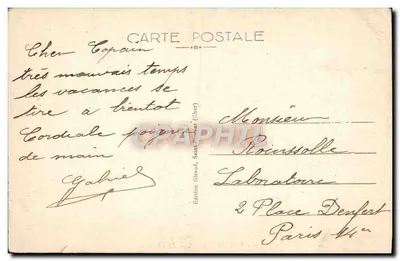 CARTE POSTALE
Cher Copain
très mauvais temps
les vacances se
tire a bientot
Cordiale poignée
de main
Gabriel
Edition (Cher)
CPAPHIL
Monsieur
Roussolle
Laboratoire
2 Place Denfert
Paris 14e